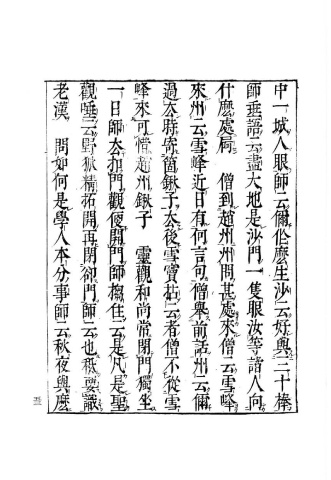 中一城人眼師云爾作麽生沙云好與三十棒
師垂語云盡大地是沙門一隻眼汝等諸人向
什麽處屙　僧到趙州州問甚處來僧云雪峰
來州云雪峰近日有何言句僧舉前話州云爾
過去時寄箇鍬子去後雪竇拈云者僧不從雪
峰來可惜趙州鍬子　靈觀和尚常閉門獨坐
一日師去扣門觀便開門師搊住云是凡是聖
觀唾云野狐精拓開再閉却門師云也秪要識
老漢　問如何是學人本分事師云秋夜與麽